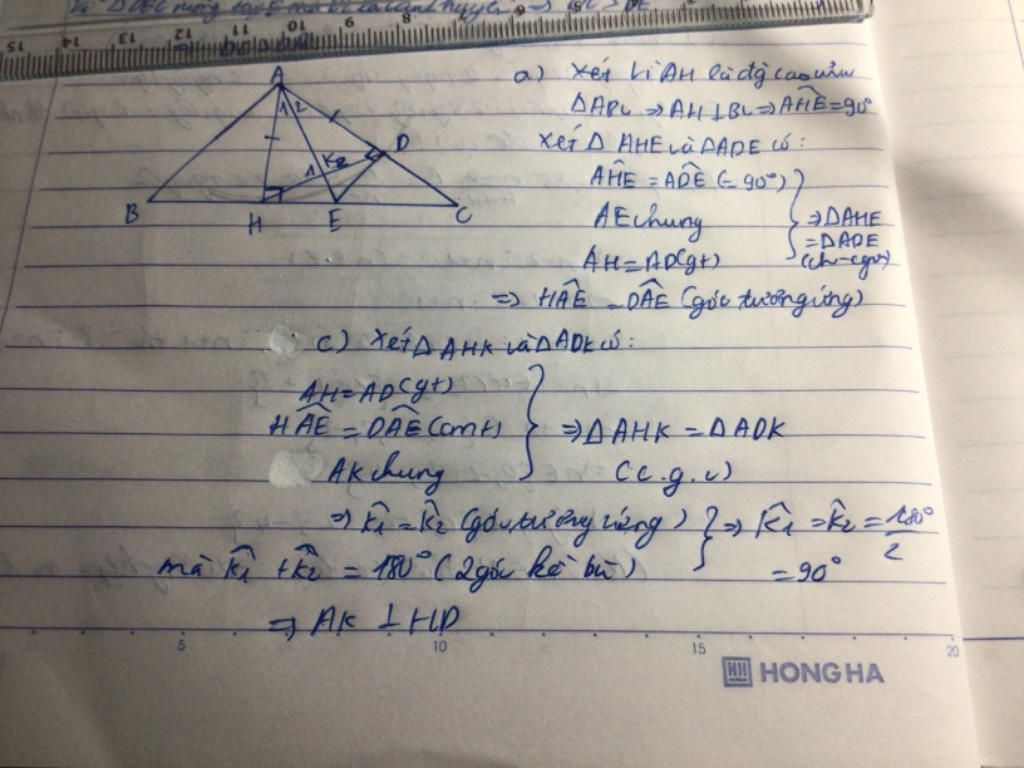 15 14 13 12 11 10 9 8 7 6
A
1 2
D
K 2
1
B
H
E
C
a) Xét Vì AH là đg cao của
ΔABC ⇒ AH ⊥ BC ⇒ AĤE = 90°
Xét Δ AHE và ΔADE có:
AĤE = AD̂E (= 90°)
AE chung
AH = AD (gt)
⇒ ΔAHE
= ΔADE
(ch - cgv)
⇒ HÂE = DÂE (góc tương ứng)
c) Xét Δ AHK và Δ ADK có:
AH = AD (gt)
HÂE = DÂE (cmt)
AK chung
⇒ Δ AHK = Δ ADK
(c.g.c)
⇒ K̂1 = K̂2 (góc tương ứng)
mà K̂1 + K̂2 = 180° (2 góc kề bù)
⇒ K̂1 = K̂2 = 180°/2
= 90°
⇒ AK ⊥ HD
5 10 15 20
HH HONG HA